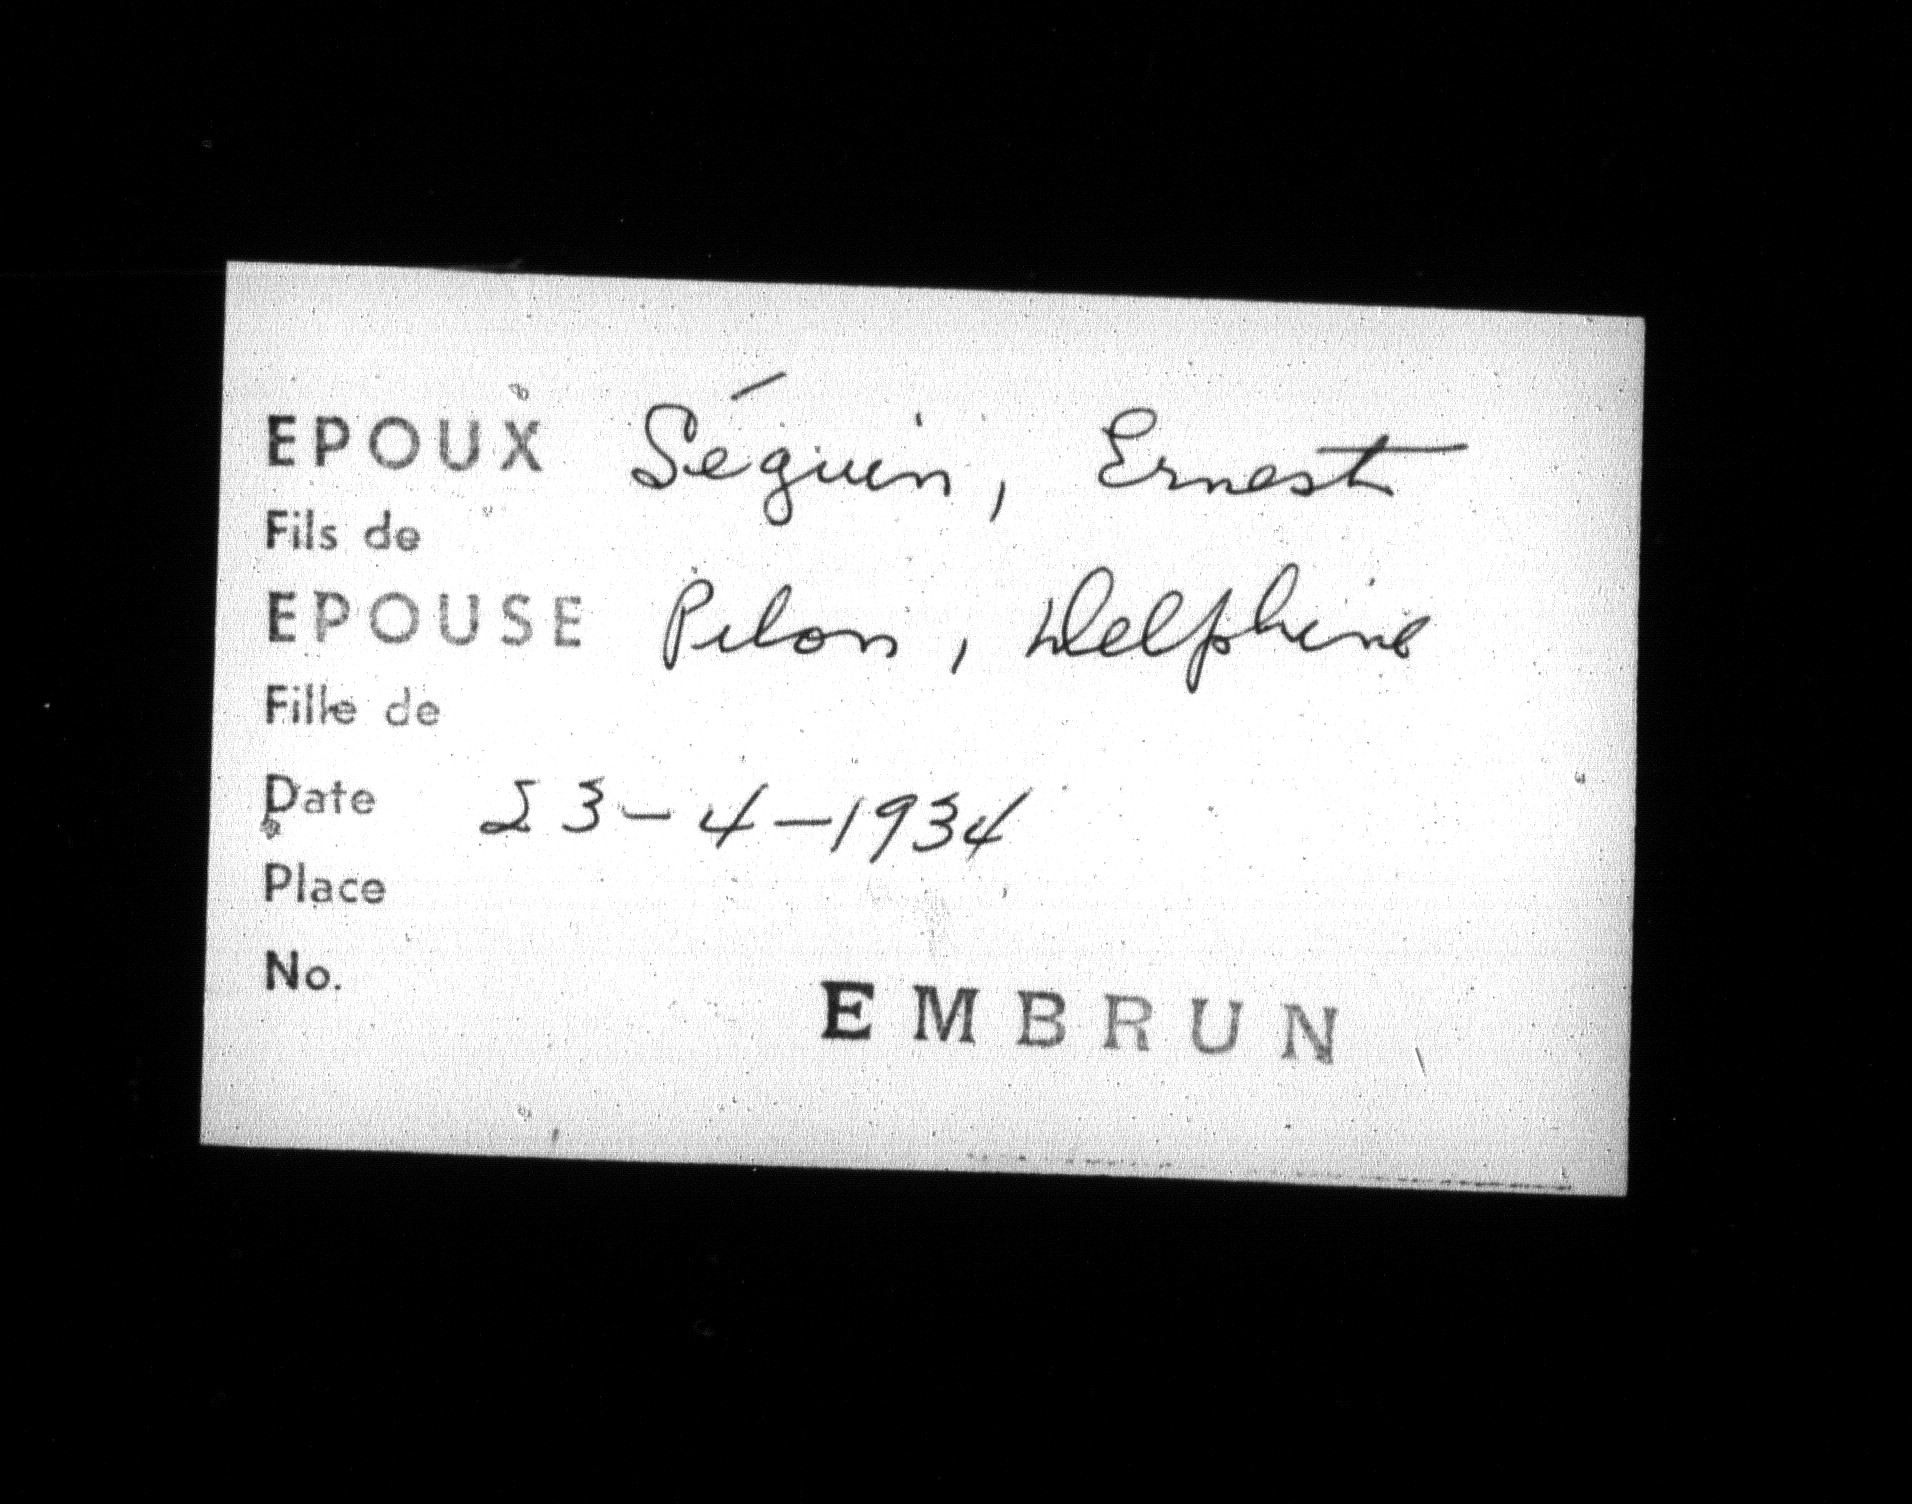 EPOUX Séguin, Ernest
Fils de
EPOUSE Pilon, Delphine
Fille de
Date 23-4-1934
Place
No.
EMBRUN